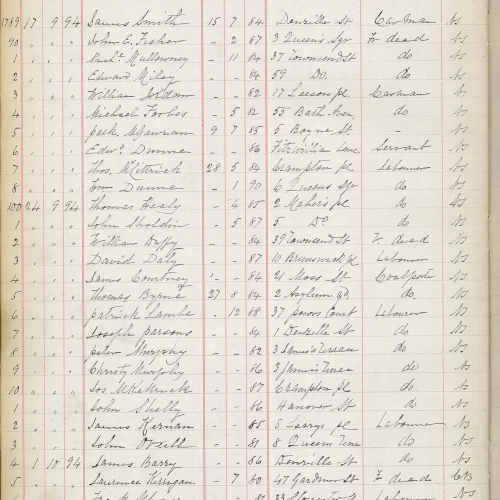 1789 17 9 94 James Smith 15 7 84 Denzille St Carman Ns
90 " " " John E. Fisher " - 2 87 3 Queens Sqr F dead Ns
1 " " " Michl Mullowney - 11 84 37 Townsend St do Ns
2 " " " Edward Miley - - 84 59 Do. do Ns
3 " " " William - - 82 17 Leeson pl. Carman Ns
4 " " " Michael Forbes - 5 82 55 Bath Aven, do Ns
5 " " " patk. McGauran 9 7 85 5 Boyne St - Ns
6 " " " Edwd. Dunne - - 86 Fitzwilliam Lane Servant Ns
7 " " " Thos. McKittrick 28 5 84 Crampton pl Labourer Ns
8 " " " Wm Dunne - 1 90 6 Queens Sqr do Ns
100 24 9 94 Thomas Healy - 4 85 2 Maher's pl do Ns
1 " " " John - 5 87 5 Do do Ns
2 " " " William Duffy - - 84 39 Townsend St F dead Ns
3 " " " David Daly - - 87 10 Brunswick Labourer Ns
4 " " " James Courtney - - 84 21 Moss St Coalporter Ns
5 " " " Thomas Byrne 27 8 84 2 Asylum do. Ns
6 " " " patrick Lambe - 12 88 37 posons Court Labourer Ns
7 " " " Joseph parsons - - 84 1 Denzille St do Ns
8 " " " peter Murphy - - 82 3 James's Terrace do Ns
9 " " " Christy Murphy - - 86 3 James's Terrace do Ns
10 " " " Jos McKittrick - - 87 Crampton pl do Ns
1 " " " John Shelly - - 86 Hanover St do Ns
2 " " " James Kernan - - 85 5 Searys pl Labourer Ns
3 " " " John Odell - - 81 8 Queens Terrace do Ns
4 1 10 94 James Barry - - 86 Denzille St do Ns
5 " " " Laurence Kerrigan - 7 80 47 Gardner St F dead CBs